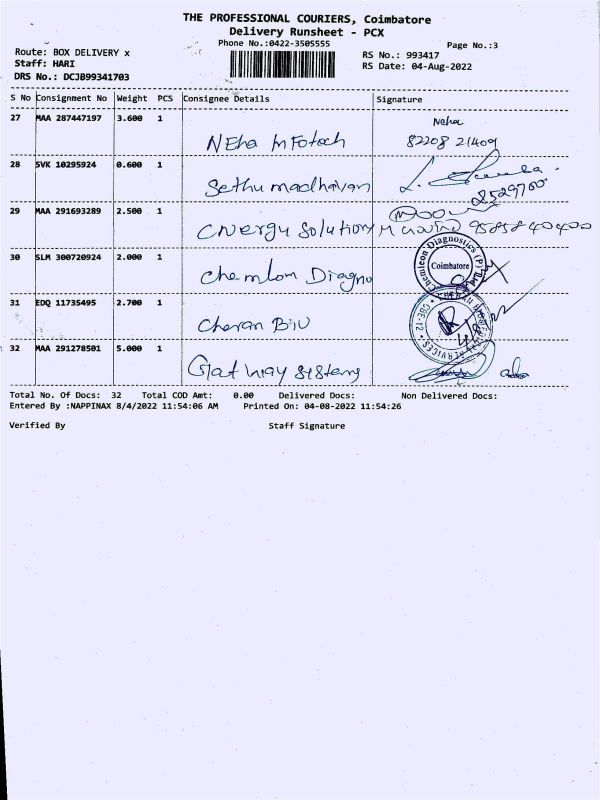 THE PROFESSIONAL COURIERS, Coimbatore
Delivery Runsheet - PCX
Phone No.:0422-3505555
Page No.:3
Route: BOX DELIVERY x
RS No.: 993417
Staff: HARI
RS Date: 04-Aug-2022
DRS No.: DCJB99341703
S No Consignment No Weight PCS Consignee Details Signature
27 MAA 287447197 3.600 1 Neha
NEha Infotech 82208 21409
28 SVK 10295924 0.600 1
Sethu madhavan
29 MAA 291693289 2.500 1
Cnergy Solution 9585840400
30 SLM 300720924 2.000 1
Chemicon Diagnostics (P) Ltd
Coimbatore
Chemlon Diagno
31 EDQ 11735495 2.700 1
Cheran Biu
CBE-12
SERVICES
32 MAA 291278501 5.000 1
Gatway Systems
Total No. Of Docs: 32 Total COD Amt: 0.00 Delivered Docs: Non Delivered Docs:
Entered By :NAPPINAX 8/4/2022 11:54:06 AM Printed On: 04-08-2022 11:54:26
Verified By Staff Signature